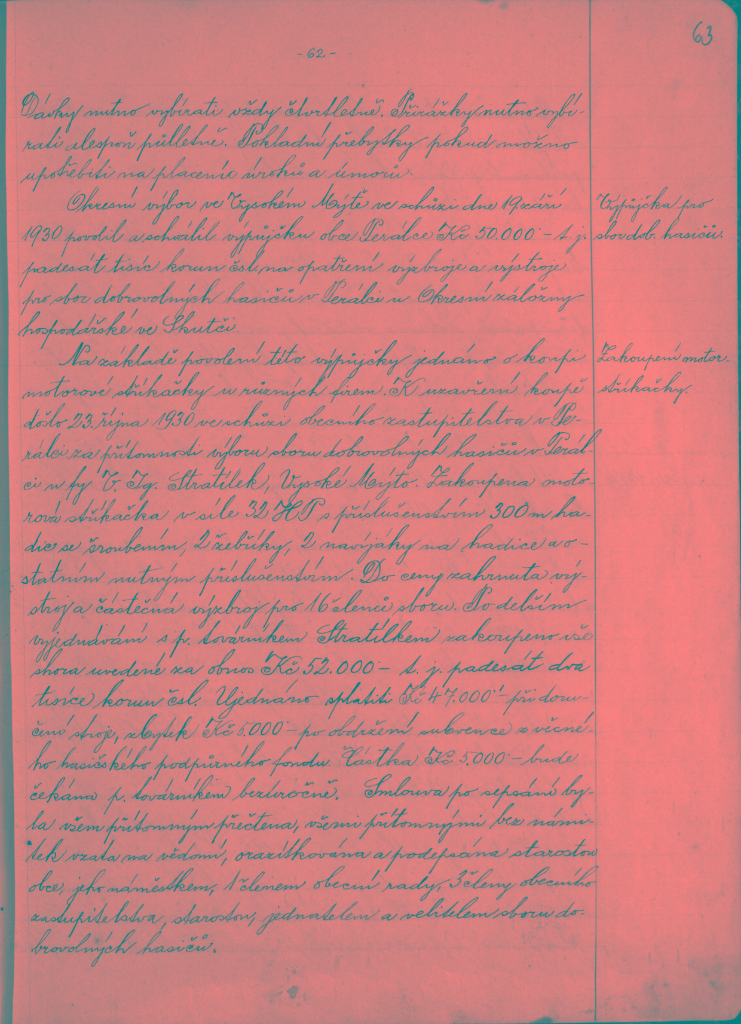 63
- 62 -
Dávky nutno vybírati vždy čtvrtletně. Přirážky nutno vybí-
rati alespoň půlletně. Pokladní přebytky pokud možno
upotřebiti na placení úroků a úmorů.
Okresní výbor ve Vysokém Mýtě ve schůzi dne 19 září
1930 povolil a schválil výpůjčku obce Perálce Kč 50.000 - t. j.
padesát tisíc korun čsl. na opatření výzbroje a výstroje
pro sbor dobrovolných hasičů v Perálci u Okresní záložny
hospodářské ve Skutči
Výpůjčka pro
sbor dob. hasičů.
Na základě povolení této výpůjčky jednáno o koupi
motorové stříkačky u různých firem. K uzavření koupě
došlo 23. října 1930 ve schůzi obecního zastupitelstva v Pe-
rálci za přítomnosti výboru sboru dobrovolných hasičů v Perál-
ci u fy V. Ig. Stratílek, Vysoké Mýto. Zakoupena moto-
rová stříkačka v síle 32 HP s příslušenstvím 300 m ha-
dic se šroubením, 2 žebříky, 2 navijáky na hadice a o-
statním nutným příslušenstvím. Do ceny zahrnuta vý-
stroj a částečná výzbroj pro 16 členů sboru. Po delším
vyjednávání s p. továrníkem Stratílkem zakoupeno vše
shora uvedené za obnos Kč 52.000 - t. j. padesát dva
tisíce korun čsl. Ujednáno splatiti Kč 47.000 - při doru-
čení stroje, zbytek Kč 5.000 - po obdržení subvence z
ho hasičského podpůrného fondu Částka Kč 5.000 - bude
čekána p. továrníkem bezúročně. Smlouva po sepsání by-
la všem přítomným přečtena, všemi přítomnými bez námi-
tek vzata na vědomí, orazítkována a podepsána starostou
obce, jeho náměstkem, 1 členem obecní rady, 3 členy obecního
zastupitelstva, starostou, jednatelem a velitelem sboru do-
brovolných hasičů.
Zakoupení motor.
stříkačky.